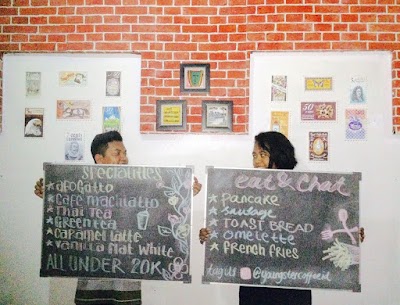 specialities
★ affogatto
★ Cafe macchiatto
★ Thai Tea
★ Green tea
★ Caramel latte
★ Vanilla Flat White
ALL UNDER 20K
eat & chat
★ pancake
★ sausage
★ TOAST BREAD
★ omelette
★ french fries
@youngstercoffee.id
50